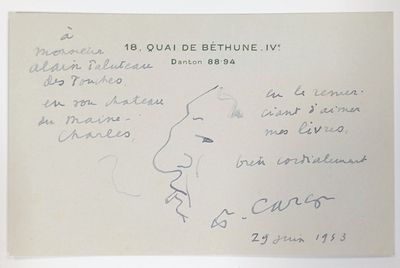 18, QUAI DE BÉTHUNE. IVᵉ
Danton 88-94
à
Monsieur
Alain Taluteau
des Touches
en son chateau
du Maine-
Charles,
en le remer-
ciant d'aimer
mes livres,
bien cordialement
F. Carco
29 juin 1953